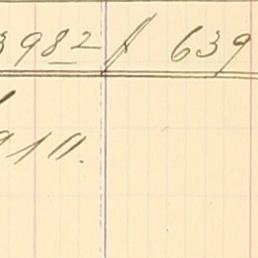 3982 $ 639
910.